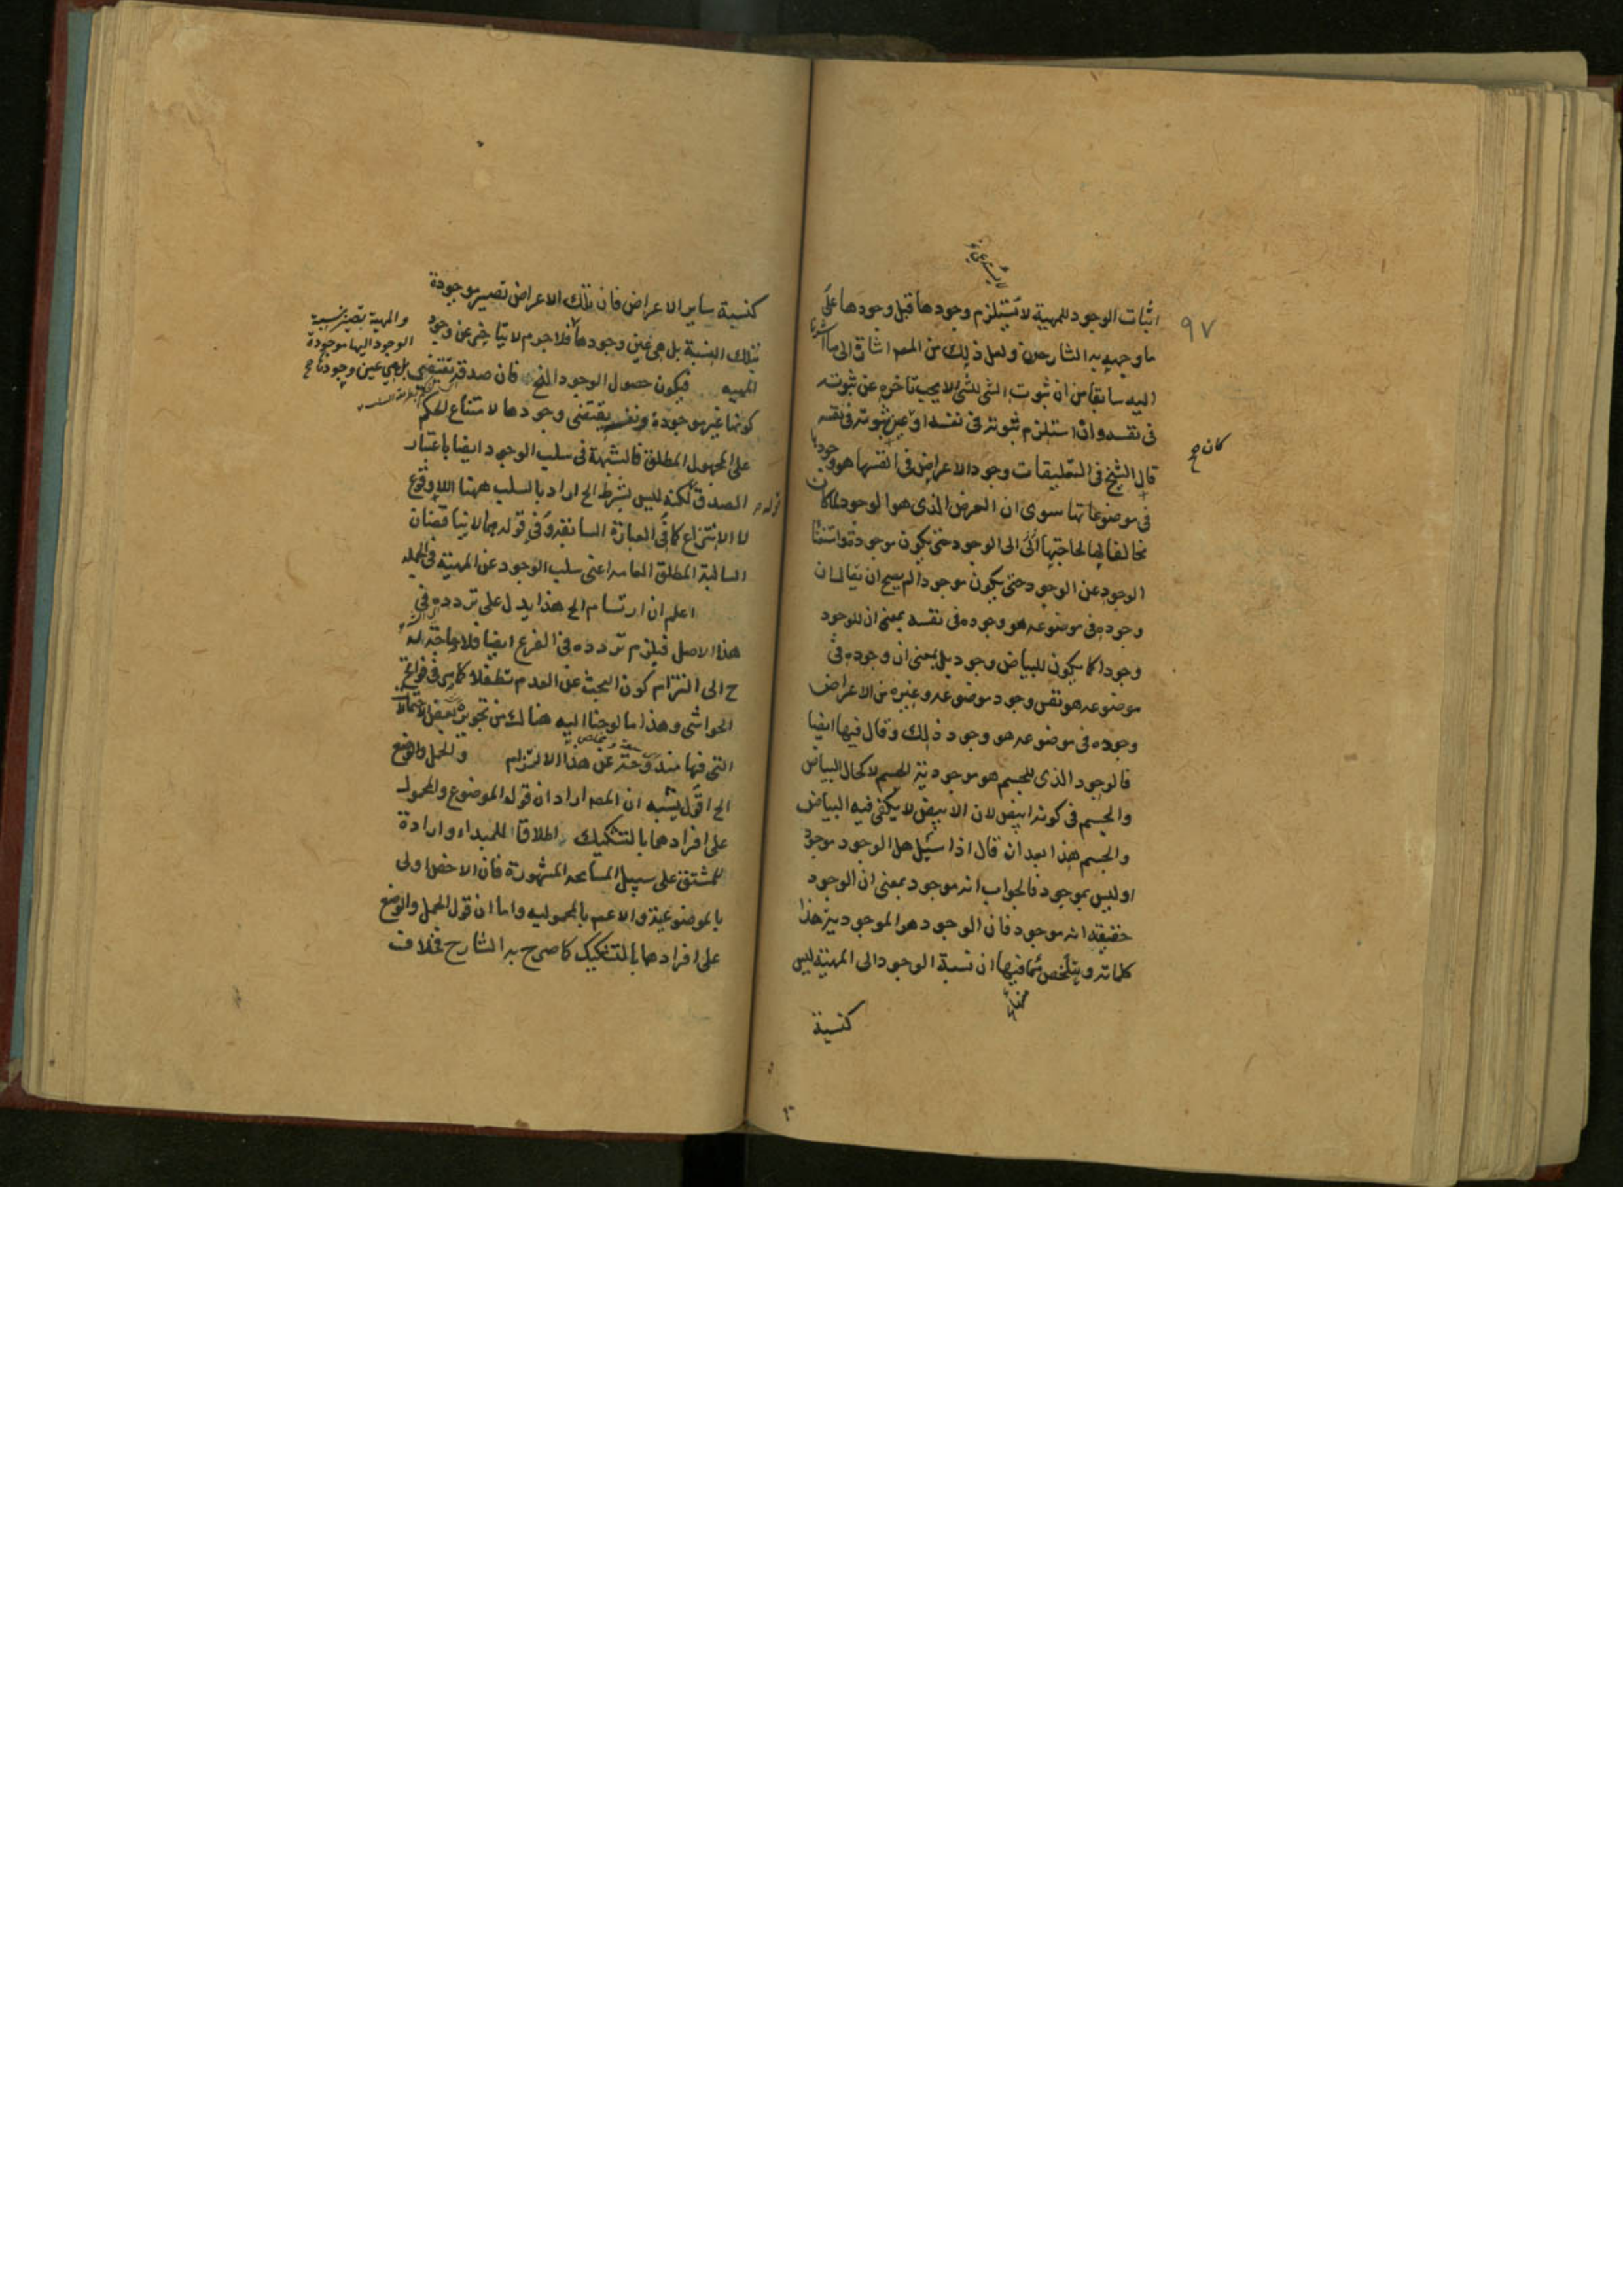 اثبات الوجود للمهية لا يستلزم وجودها قبل وجودها على
ما وجهه به الشارحون ولعل ذلك من المصـ اشارة الى ما اشرنا
اليه سابقا من ان ثبوت الشئ للشئ لا يجب تاخره عن ثبوته
فى نفسه وان استلزم ثبوته فى نفسه او عين ثبوته فى نفسه
كان ح
٩٧
قال الشيخ فى التعليقات وجود الاعراض فى انفسها هو وجودها
فى موضوعاتها سوى ان العرض الذى هو الوجود لما كان
مخالفا لها لحاجتها الى الوجود حتى يكون موجودة واستغناء
الوجود عن الوجود حتى يكون موجودا لم يصح ان يقال ان
وجوده فى موضوعه هو وجوده فى نفسه بمعنى ان للوجود
وجودا كما يكون للبياض وجود بل بمعنى ان وجوده فى
موضوعه هو نفس وجود موضوعه وغيره من الاعراض
وجوده فى موضوعه هو وجود ذلك وقال فيها ايضا
فالوجود الذى للجسم هو موجودية الجسم لا كحال البياض
والجسم فى كونه ابيض لان الابيض لا يكفى فيه البياض
والجسم هذا بعد ان قال اذا سئيل هل الوجود موجود
او ليس بموجود فالجواب انه موجود بمعنى ان الوجود
حقيقته انه موجود فان الوجود هو الموجودية هذا
كلماته ويتلخص مما فيها ان نسبة الوجود الى المهية ليس
كنسبة
كنسبة ساير الاعراض فان تلك الاعراض تصير موجودة
بتلك النسبة بل هى عين وجودها فلا جرم لا يتاخر عن وجود
والمهية تصير بنسبة
الوجود اليها موجودة
بل هى عين وجودها ح
المهيه فيكون حصول الوجود الخ فان صدقه يقتضى
كونها غير موجودة ونفسه يقتضى وجودها لامتناع الحكم
على المجهول المطلق فالشبهة فى سلب الوجود ايضا باعتبار
الصدق لكنه ليس بشرط الخ اراد بالسلب ههنا اللاوقوع
لا الانتزاع كما فى العبارة السابقة وفى قوله مما لا يناقضان
السالبة المطلق العامه اعنى سلب الوجود عن المهية فى الجمله
اعلم ان ارتسام الخ هذا يدل على تردده فى
هذا الاصل فيلزم تردده فى الفرع ايضا فلا حاجة له
ح الى التزام كون البحث عن العدم تطفلا كما مر فى فواتح
الحواشى وهذا ما لوحنا اليه هناك من تجويزه بعض الاحتمالات
التى فيها مندوحة عن هذا الالتزام والحمل والوضع
الخ اقول يشبه ان المصـ اراد ان قول الموضوع والمحمول
على افرادهما بالتشكيك اطلاقا للمبداء وارادة
للمشتق على سبيل المسامحه المشهورة فان الاخص اولى
بالموضوعية والاعم بالمحموليه واما ان قول الحمل والوضع
على افرادهما بالتشكيك كما صرح به الشارح فخلاف